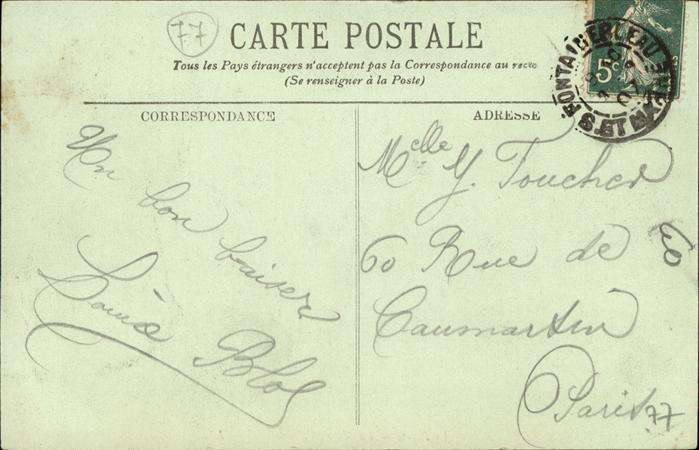 77
CARTE POSTALE
Tous les Pays étrangers n'acceptent pas la Correspondance au recto
(Se renseigner à la Poste)
CORRESPONDANCE
Un bon baiser
ADRESSE
Melle Y. Toucher
60 Rue de
Caumartin
Paris
77
60
FONTAINEBLEAU
S. ET MARNE
5